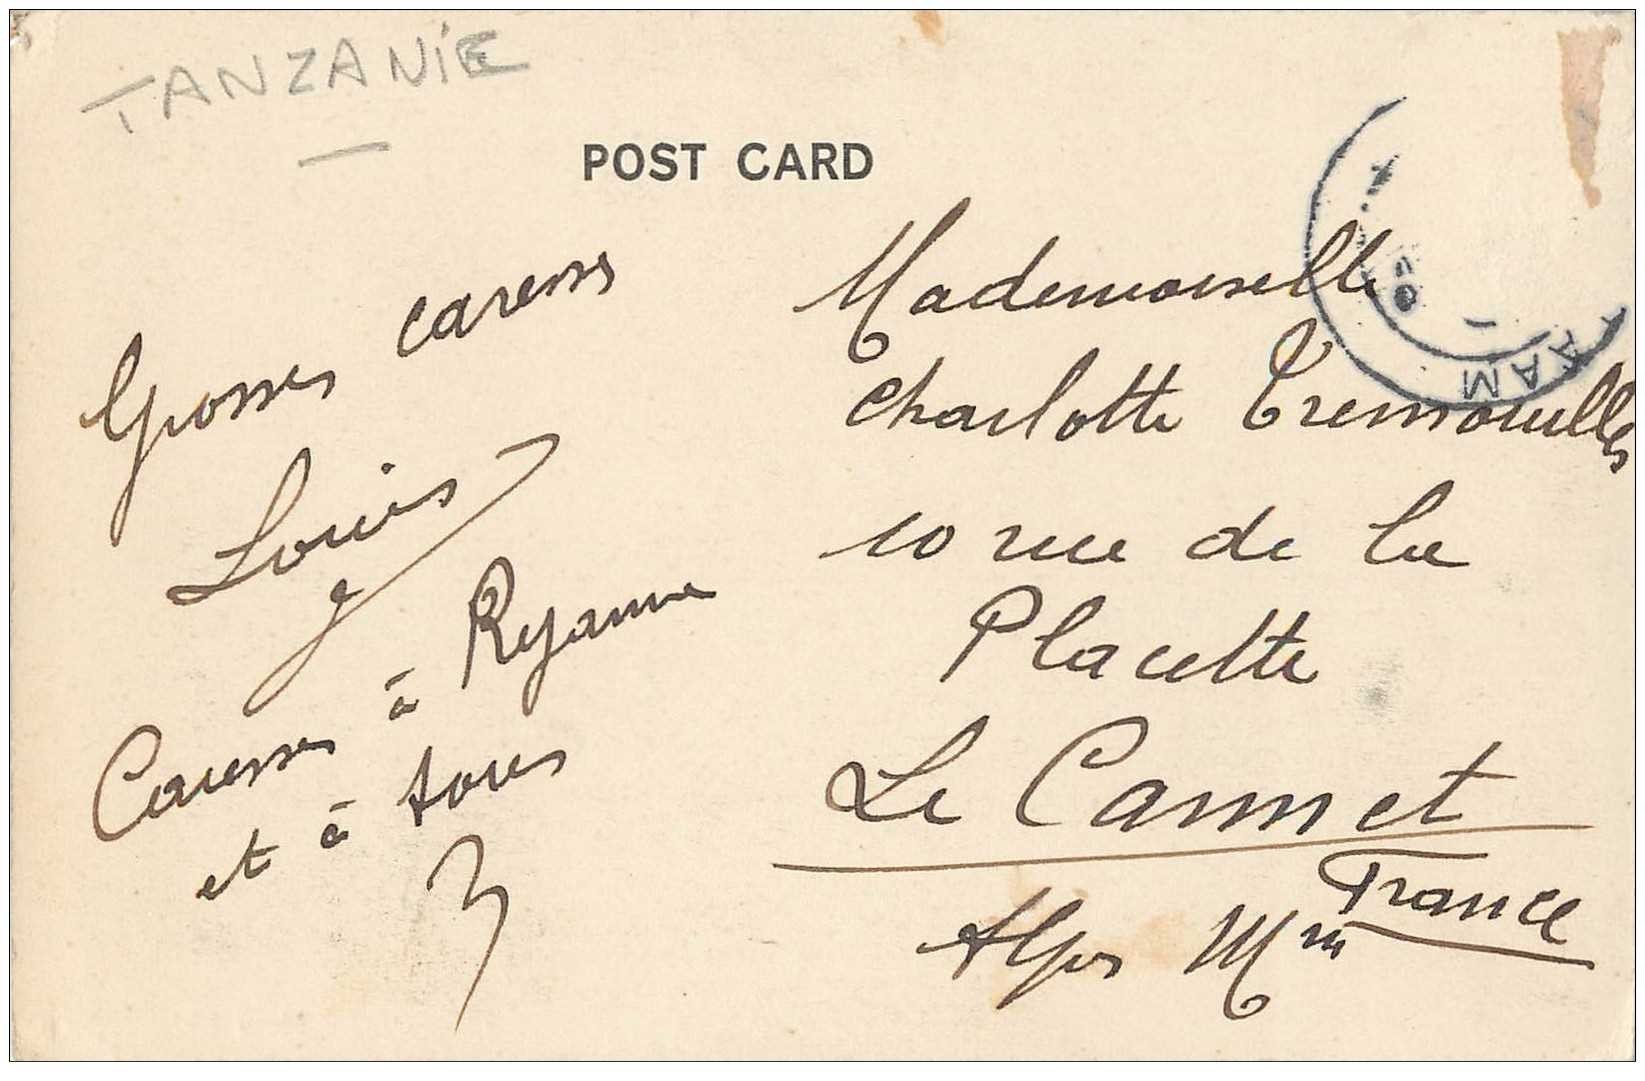 TANZANIE
POST CARD
Grosses caresses
Louis
Caresses à Rejanne
et à tous
Mademoiselle
Charlotte Tremouilles
10 rue de la
Placette
Le Cannet
France
Alpes Mmes
AAM